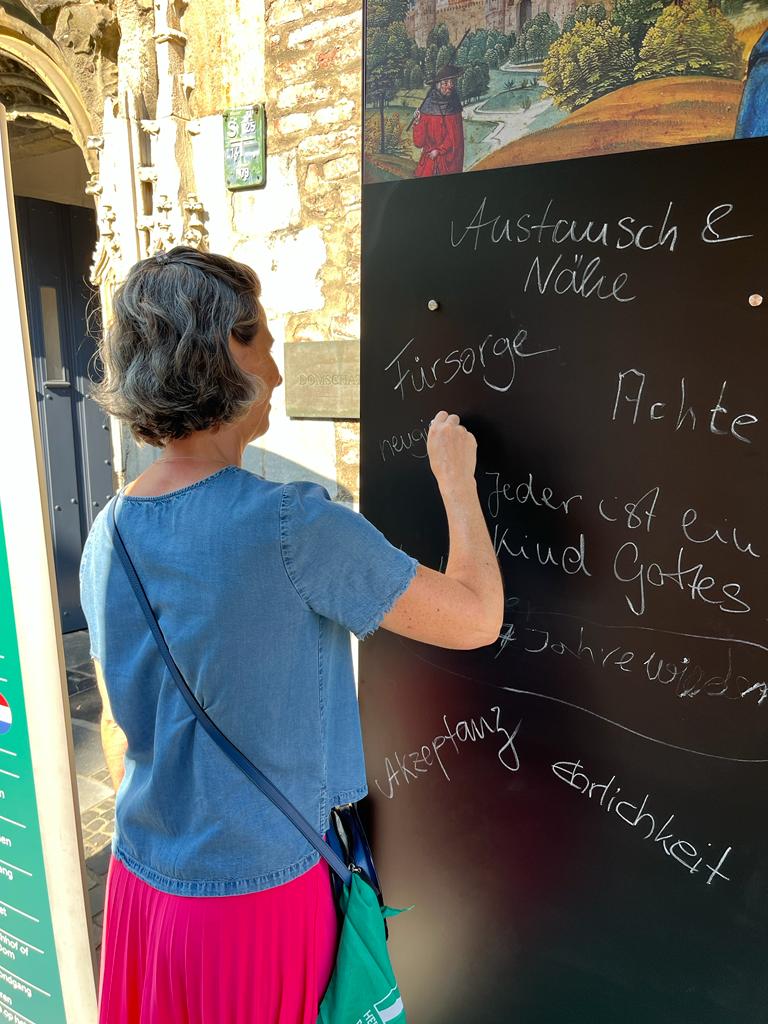 Austausch &
Nähe
Fürsorge
Achte
neugi
Jeder ist ein
Kind Gottes
7 Jahre wieder
Akzeptanz
Ehrlichkeit
DOMSCHA
S